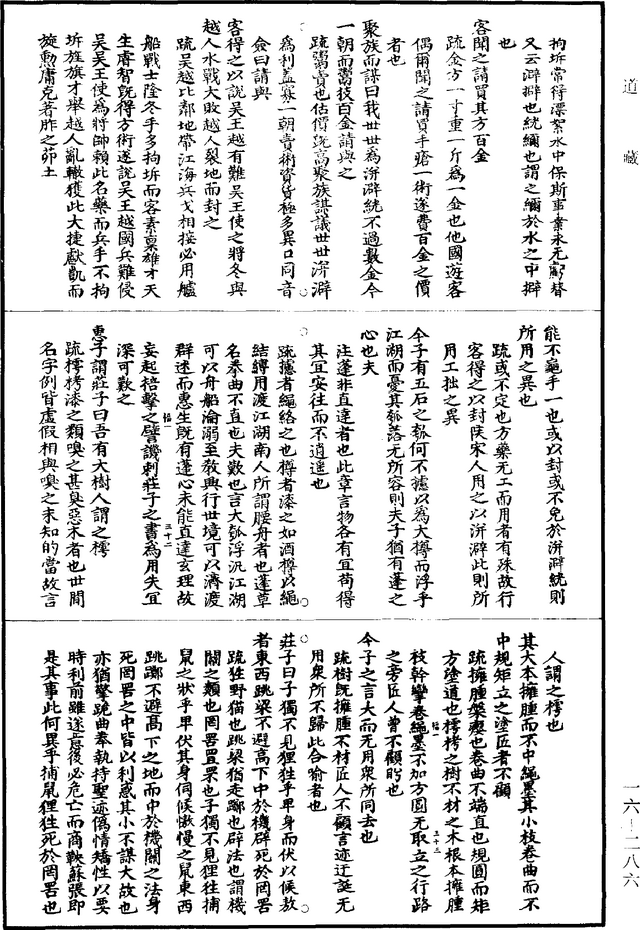 道藏
拘坼常得漂絮水中保斯事業永无虧替
又云澼擗也絖纊也謂之纊於水之中擗
也
客聞之請買其方百金
疏金方一寸重一斤為一金也他國遊客
偶爾聞之請買手瘡一術遂費百金之價
者也
聚族而謀曰我世世為洴澼絖不過數金今
一朝而鬻技百金請與之
疏鬻賣也估價既高聚族謀議世世洴澼
為利蓋寡一朝賣術資貨極多異口同音
僉曰請與
客得之以說吳王越有難吳王使之將冬與
越人水戰大敗越人裂地而封之
疏吳越比鄰地帶江海兵戈相接必用艫
船戰士隆冬手多拘坼而客素稟雄才天
生睿智既得方術遂說吳王越國兵難侵
吳吳王使為將帥賴此名藥而兵手不拘
坼旌旗才舉越人亂轍獲此大捷獻凱而
旋勲庸克著胙之茆土
能不龜手一也或以封或不免於洴澼絖則
所用之異也
疏或不定也方藥无工而用者有殊故行
客得之以封陝宋人用之以洴澼此則所
用工拙之異
今子有五石之瓠何不慮以為大樽而浮乎
江湖而憂其瓠落无所容則夫子猶有蓬之
心也夫
注蓬非直達者也此章言物各有宜苟得
其宜安往而不逍遙也
疏攄者繩絡之也樽者漆之如酒樽以繩
結縛用渡江湖南人所謂腰舟者也蓬草
名拳曲不直也夫歎也言大瓠浮汎江湖
可以舟船淪溺至教興行世境可以濟渡
群迷而惠生既有蓬心未能直達玄理故
妄起掊擊之譬譏刺莊子之書為用失宜
深可歎之
惠子謂莊子曰吾有大樹人謂之樗
疏樗栲漆之類嗅之甚臭惡木者也世間
名字例皆虛假相與嗅之未知的當故言
人謂之樗也
其大本擁腫而不中繩墨其小枝卷曲而不
中規矩立之塗匠者不顧
疏擁腫槃癭也卷曲不端直也規圓而矩
方塗道也樗栲之樹不材之木根本擁腫
枝幹攣卷繩墨不加方圓无取立之行路
之旁匠人曾不顧盻也
今子之言大而无用衆所同去也
疏樹既擁腫不材匠人不顧言迹迂誕无
用衆所不歸此合喻者也
莊子曰子獨不見狸狌乎卑身而伏以候敖
者東西跳梁不避高下中於機辟死於罔罟
疏狌野猫也跳梁猶走躑也辟法也謂機
關之類也罔罟罝罘也子獨不見狸狌捕
鼠之狀乎卑伏其身伺候慠慢之鼠東西
跳躑不避高下之地而中於機關之法身
死罔罟之中皆以利惑其小不謀大故也
亦猶擎跪曲拳執持聖迹偽情矯性以要
時利前雖遂意後必危亡而商鞅蘇張即
是其事此何異乎捕鼠狸狌死於罔罟也
一六-二八六